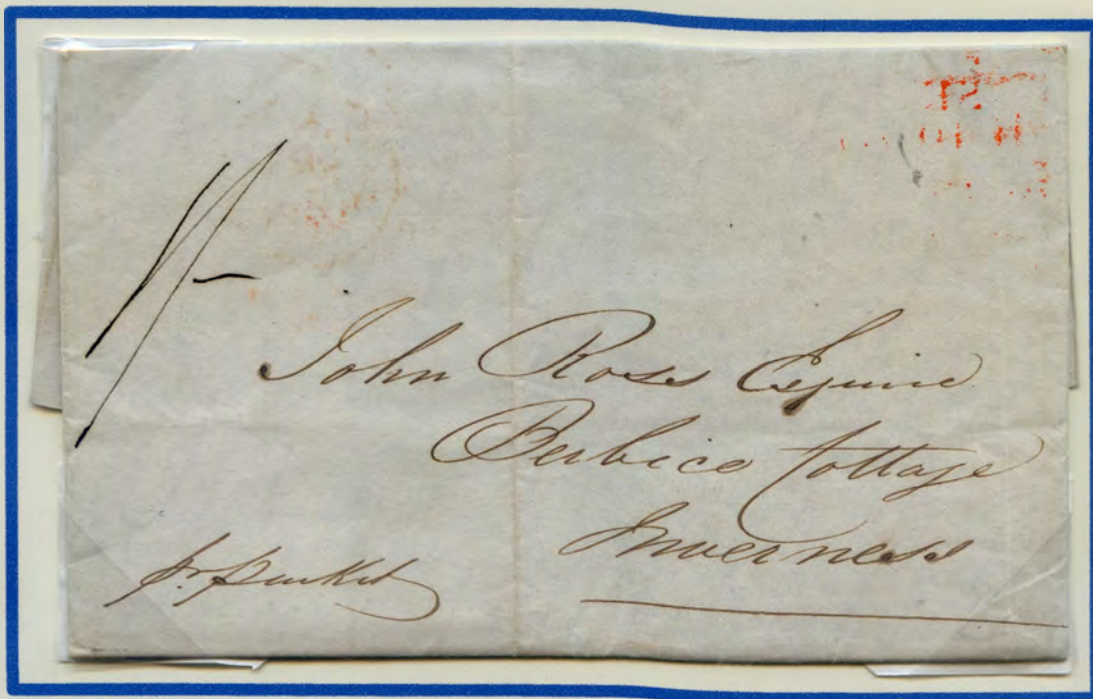 1/-
John Ross Esquire
Berbice Cottage
Inverness
pr. packet